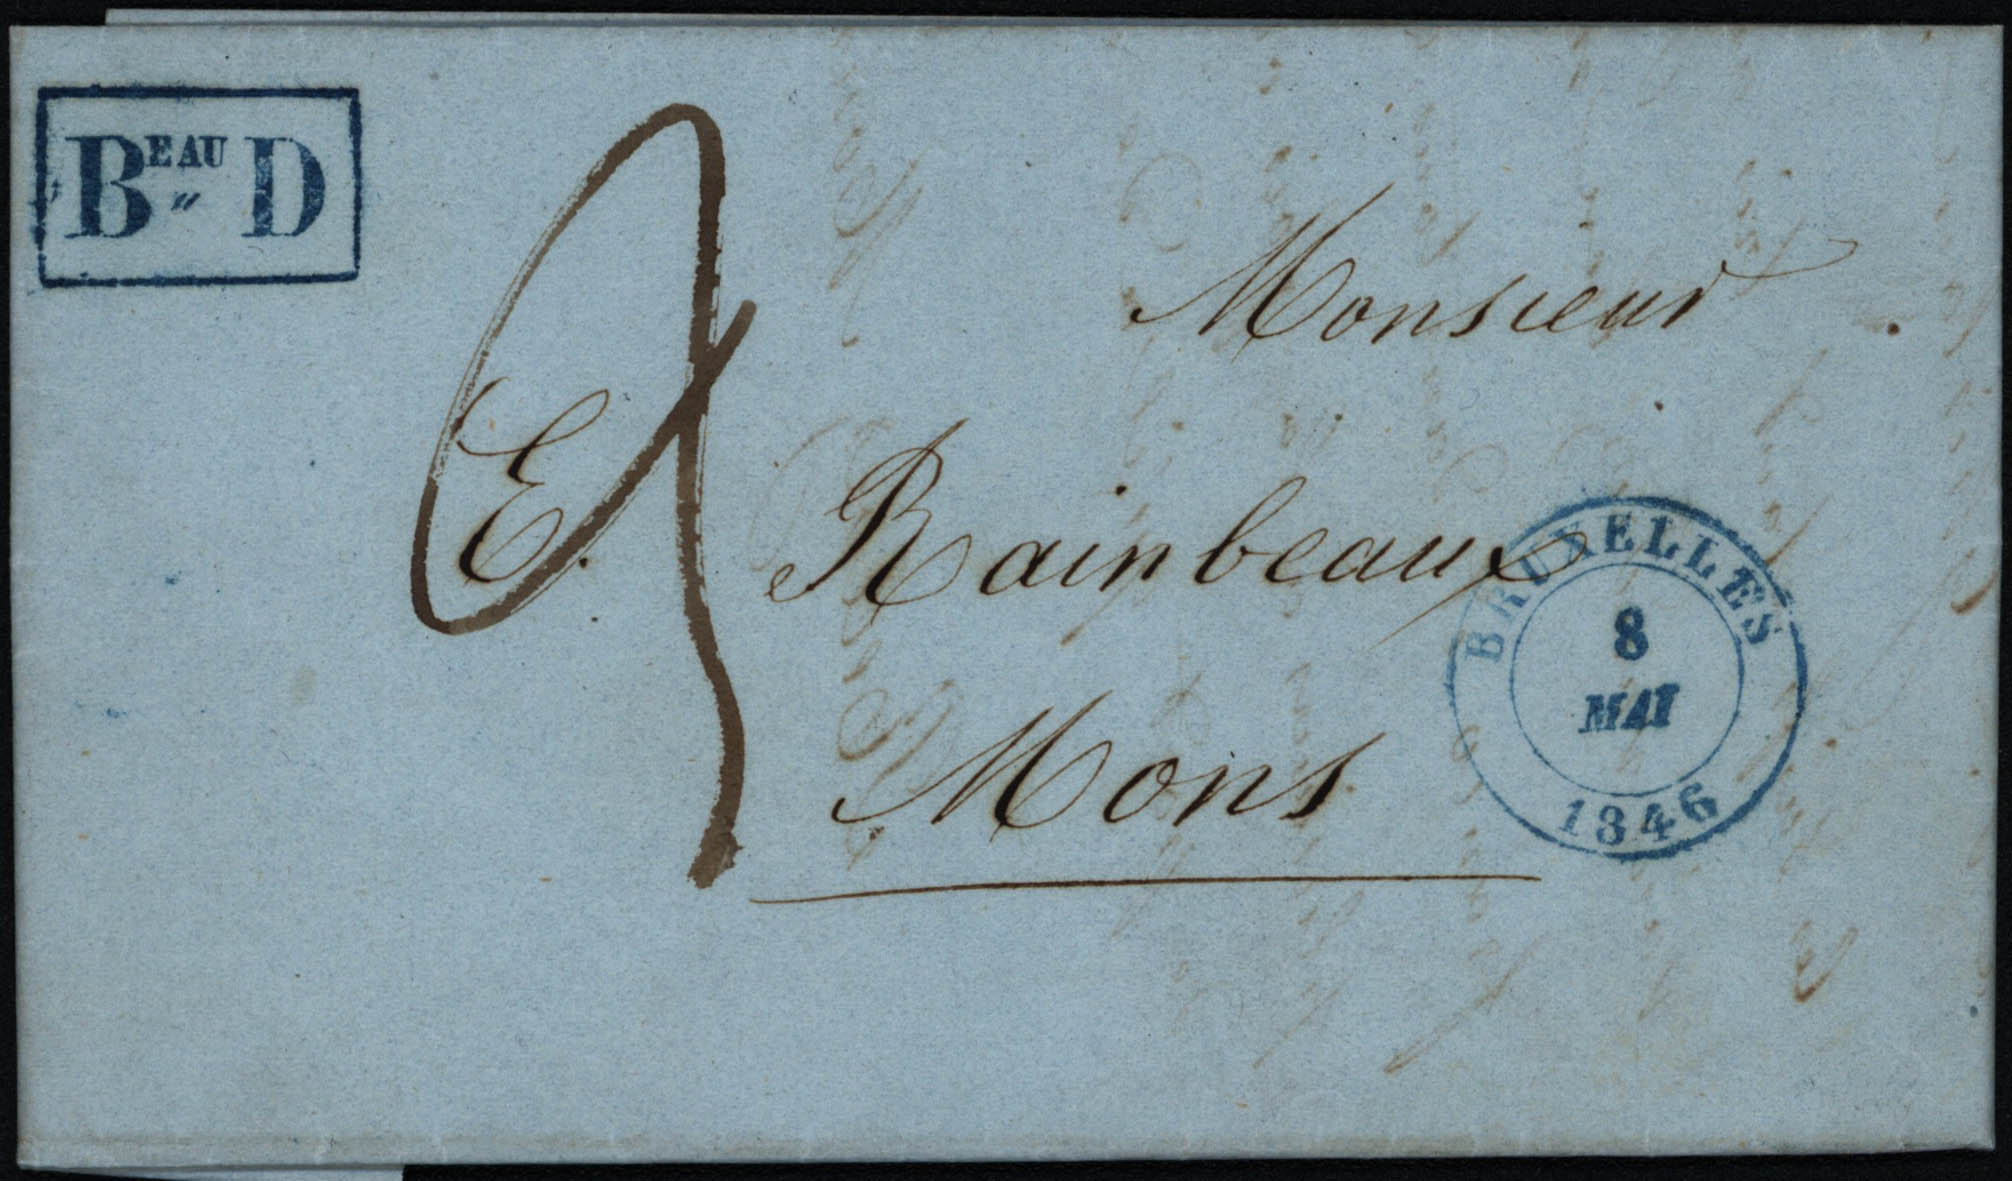 BEAU " D
Monsieur
E. Rainbeaux
Mons
BRUXELLES
8
MAI
1846